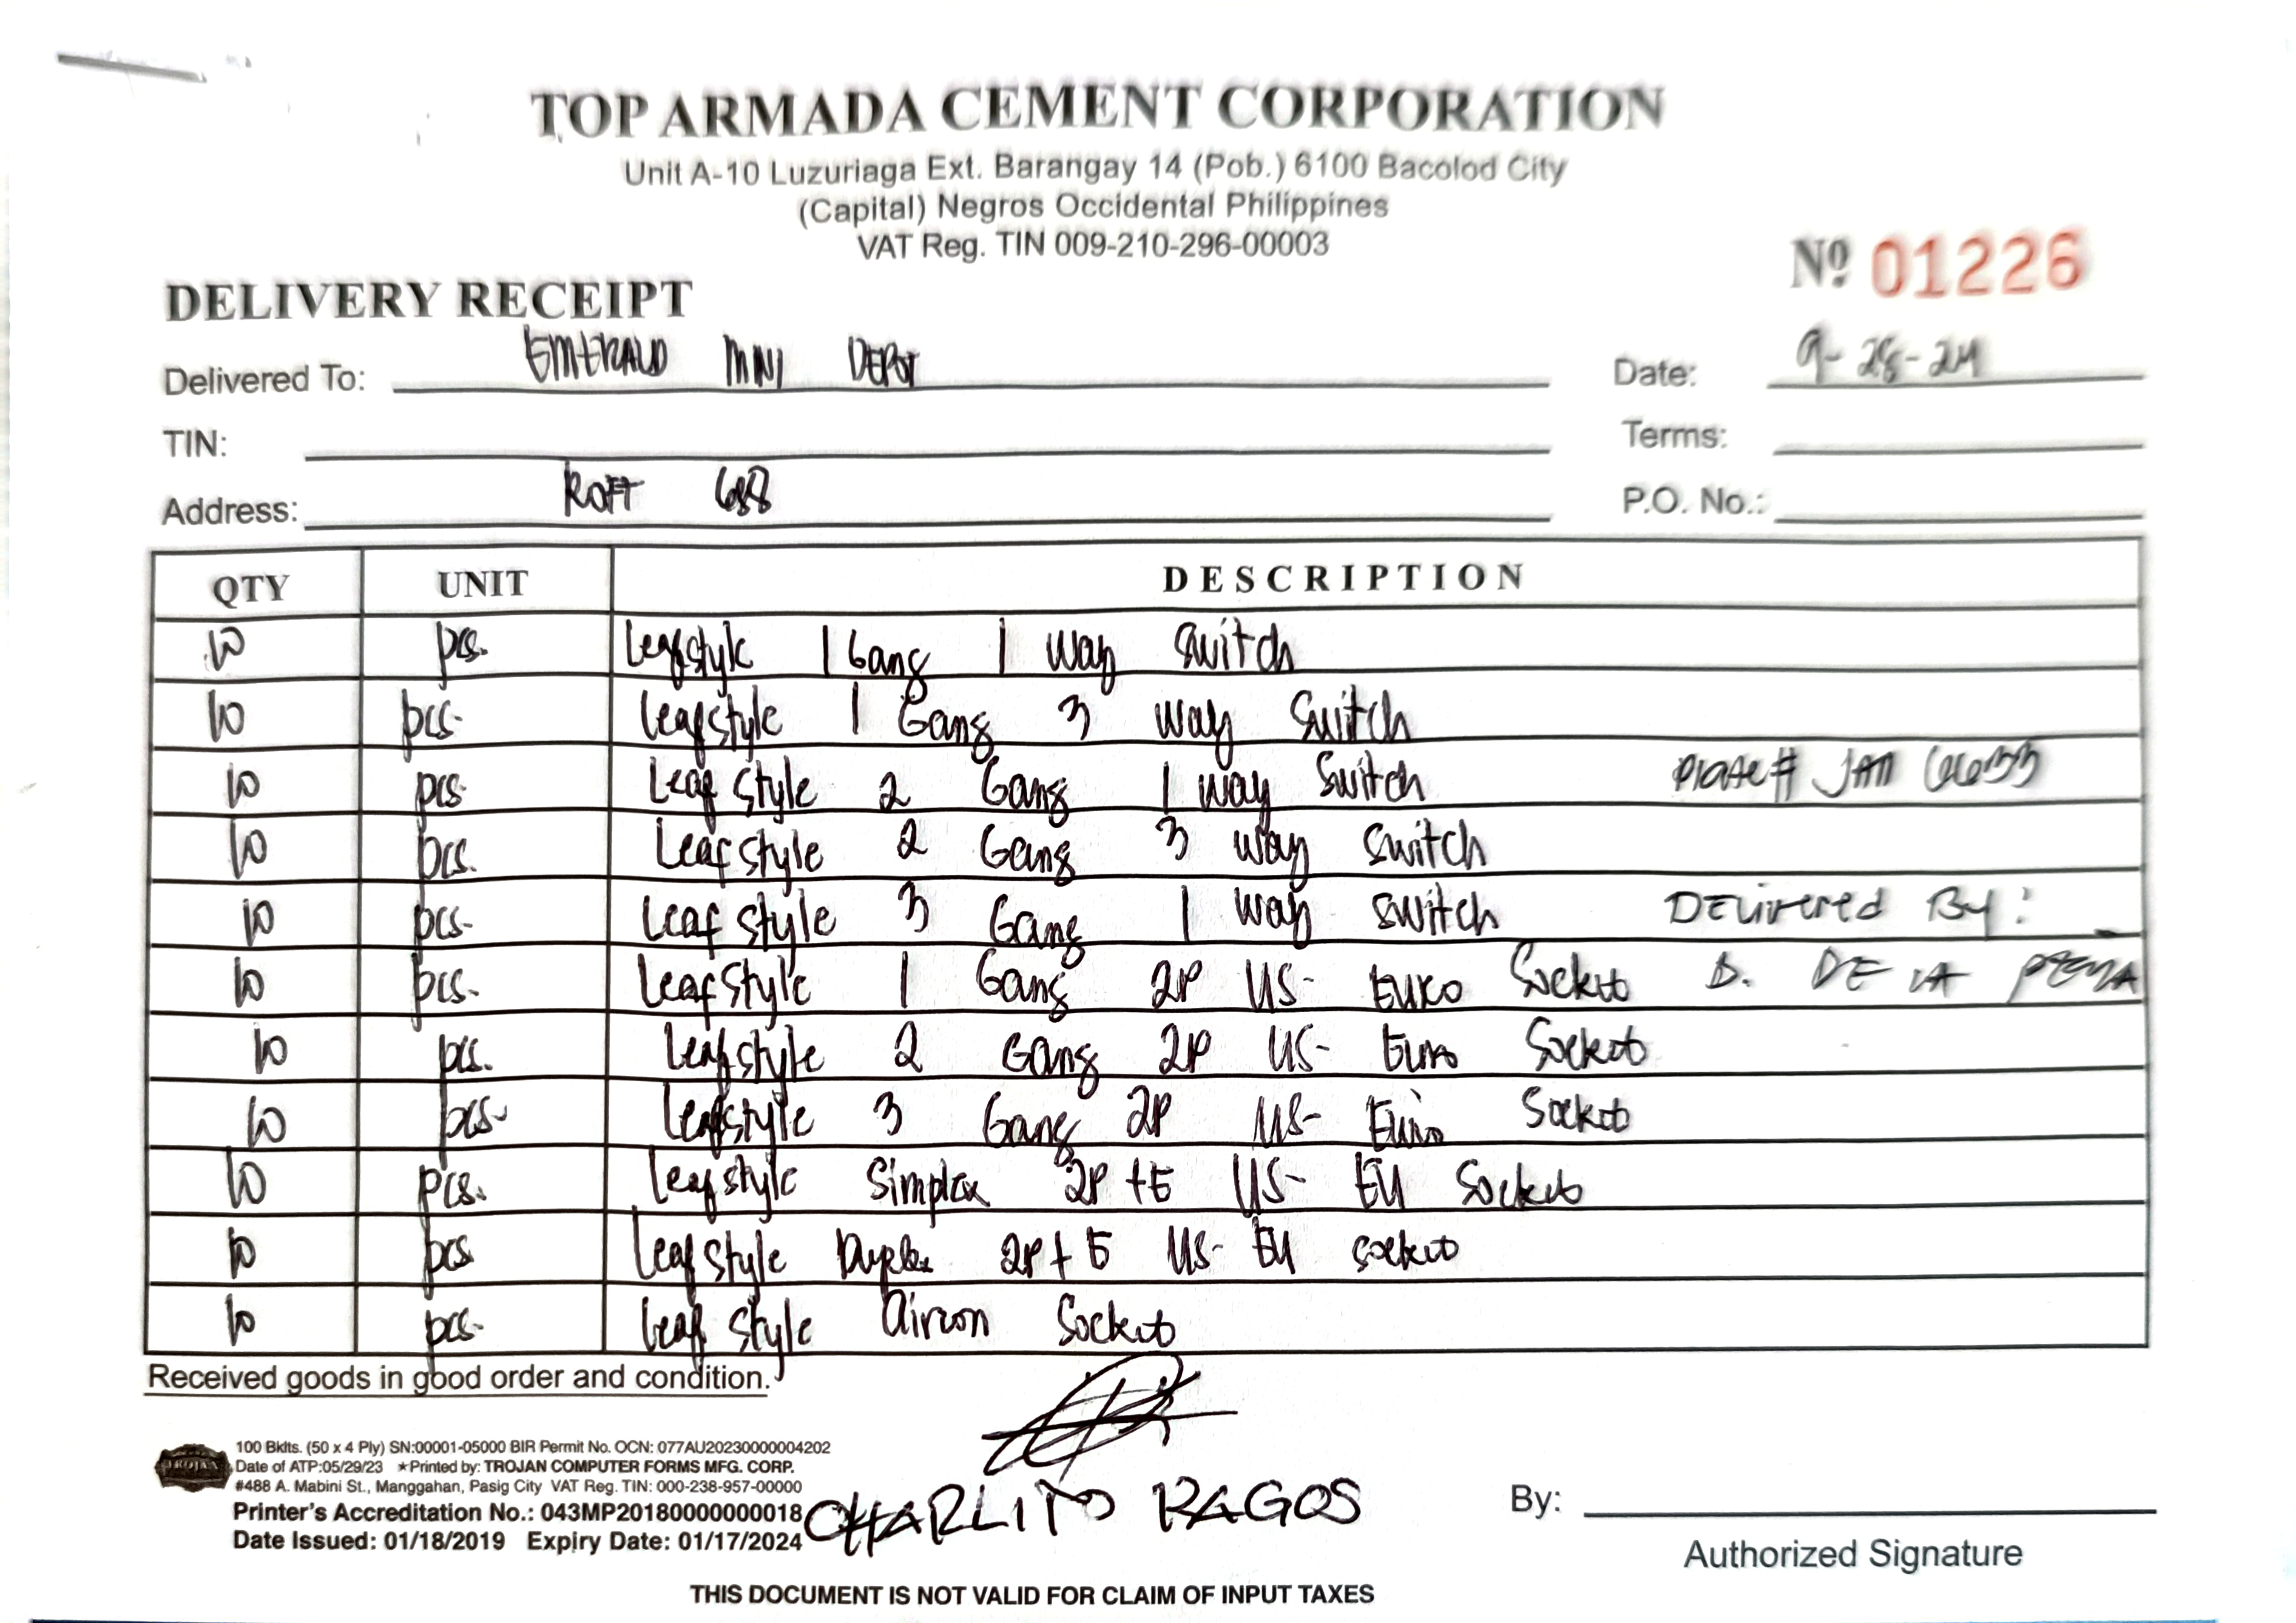 TOP ARMADA CEMENT CORPORATION
Unit A-10 Luzuriaga Ext. Barangay 14 (Pob.) 6100 Bacolod City
(Capital) Negros Occidental Philippines
VAT Reg. TIN 009-210-296-00003
Nº 01226
DELIVERY RECEIPT
Delivered To: EMERALD MINI DEPOT
Date: 9-28-24
TIN:
Terms:
Address: 688
P.O. No.:
QTY UNIT DESCRIPTION
10 pcs. Leafstyle 1 Gang 1 way Switch
10 pcs. Leafstyle 1 Gang 3 way Switch
10 pcs. Leaf Style 2 Gang 1 way Switch Plate#
10 pcs. Leaf Style 2 Gang 3 way Switch
10 pcs. Leaf Style 3 Gang 1 way Switch Delivered By:
10 pcs. Leaf Style 1 Gang 2P US- Euro Socket D. DE LA PENA
10 pcs. Leafstyle 2 Gang 2P US- Euro Socket
10 pcs. Leafstyle 3 Gang 2P US- Euro Socket
10 pcs. Leaf style Simplex 2P +E US- EU Socket
10 pcs Leaf Style Duplex 2P+ E US- EU socket
10 pcs. Leaf Style Aircon Socket
Received goods in good order and condition.
TROJAN
100 Bklts. (50 x 4 Ply) SN:00001-05000 BIR Permit No. OCN: 077AU20230000004202
Date of ATP:05/29/23 ★Printed by: TROJAN COMPUTER FORMS MFG. CORP.
#488 A. Mabini St., Manggahan, Pasig City VAT Reg. TIN: 000-238-957-00000
Printer's Accreditation No.: 043MP20180000000018
Date Issued: 01/18/2019 Expiry Date: 01/17/2024
CHARLITO RAGOS
By:
Authorized Signature
THIS DOCUMENT IS NOT VALID FOR CLAIM OF INPUT TAXES